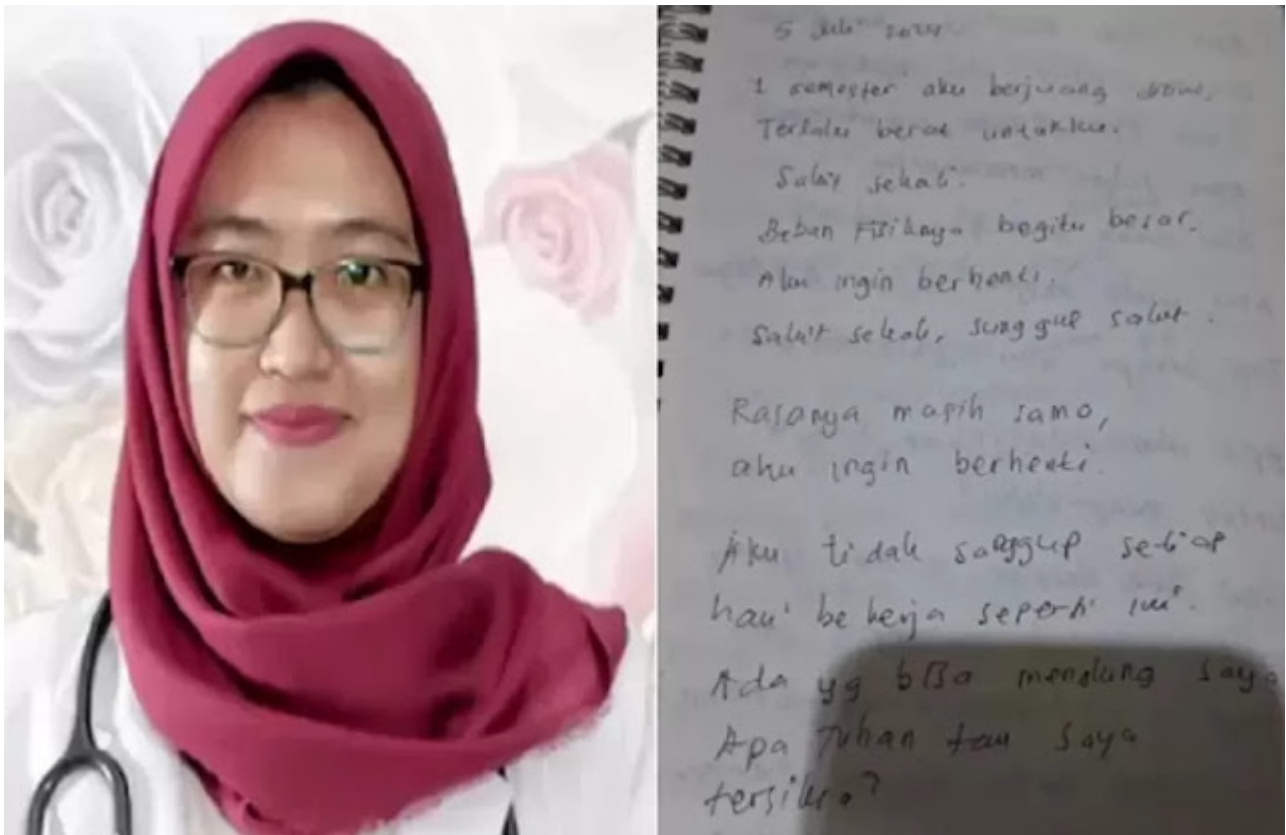 5 Juli 2024
1 semester aku berjuang disini.
Terlalu berat untukku.
Sakit sekali.
Beban Fisiknya begitu besar.
Aku ingin berhenti.
Sakit sekali, sungguh sakit.
Rasanya masih sama,
aku ingin berhenti.
Aku tidak sanggup setiap
hari bekerja seperti ini.
Ada yg bisa menolong saya
Apa Tuhan tau saya
tersiksa?